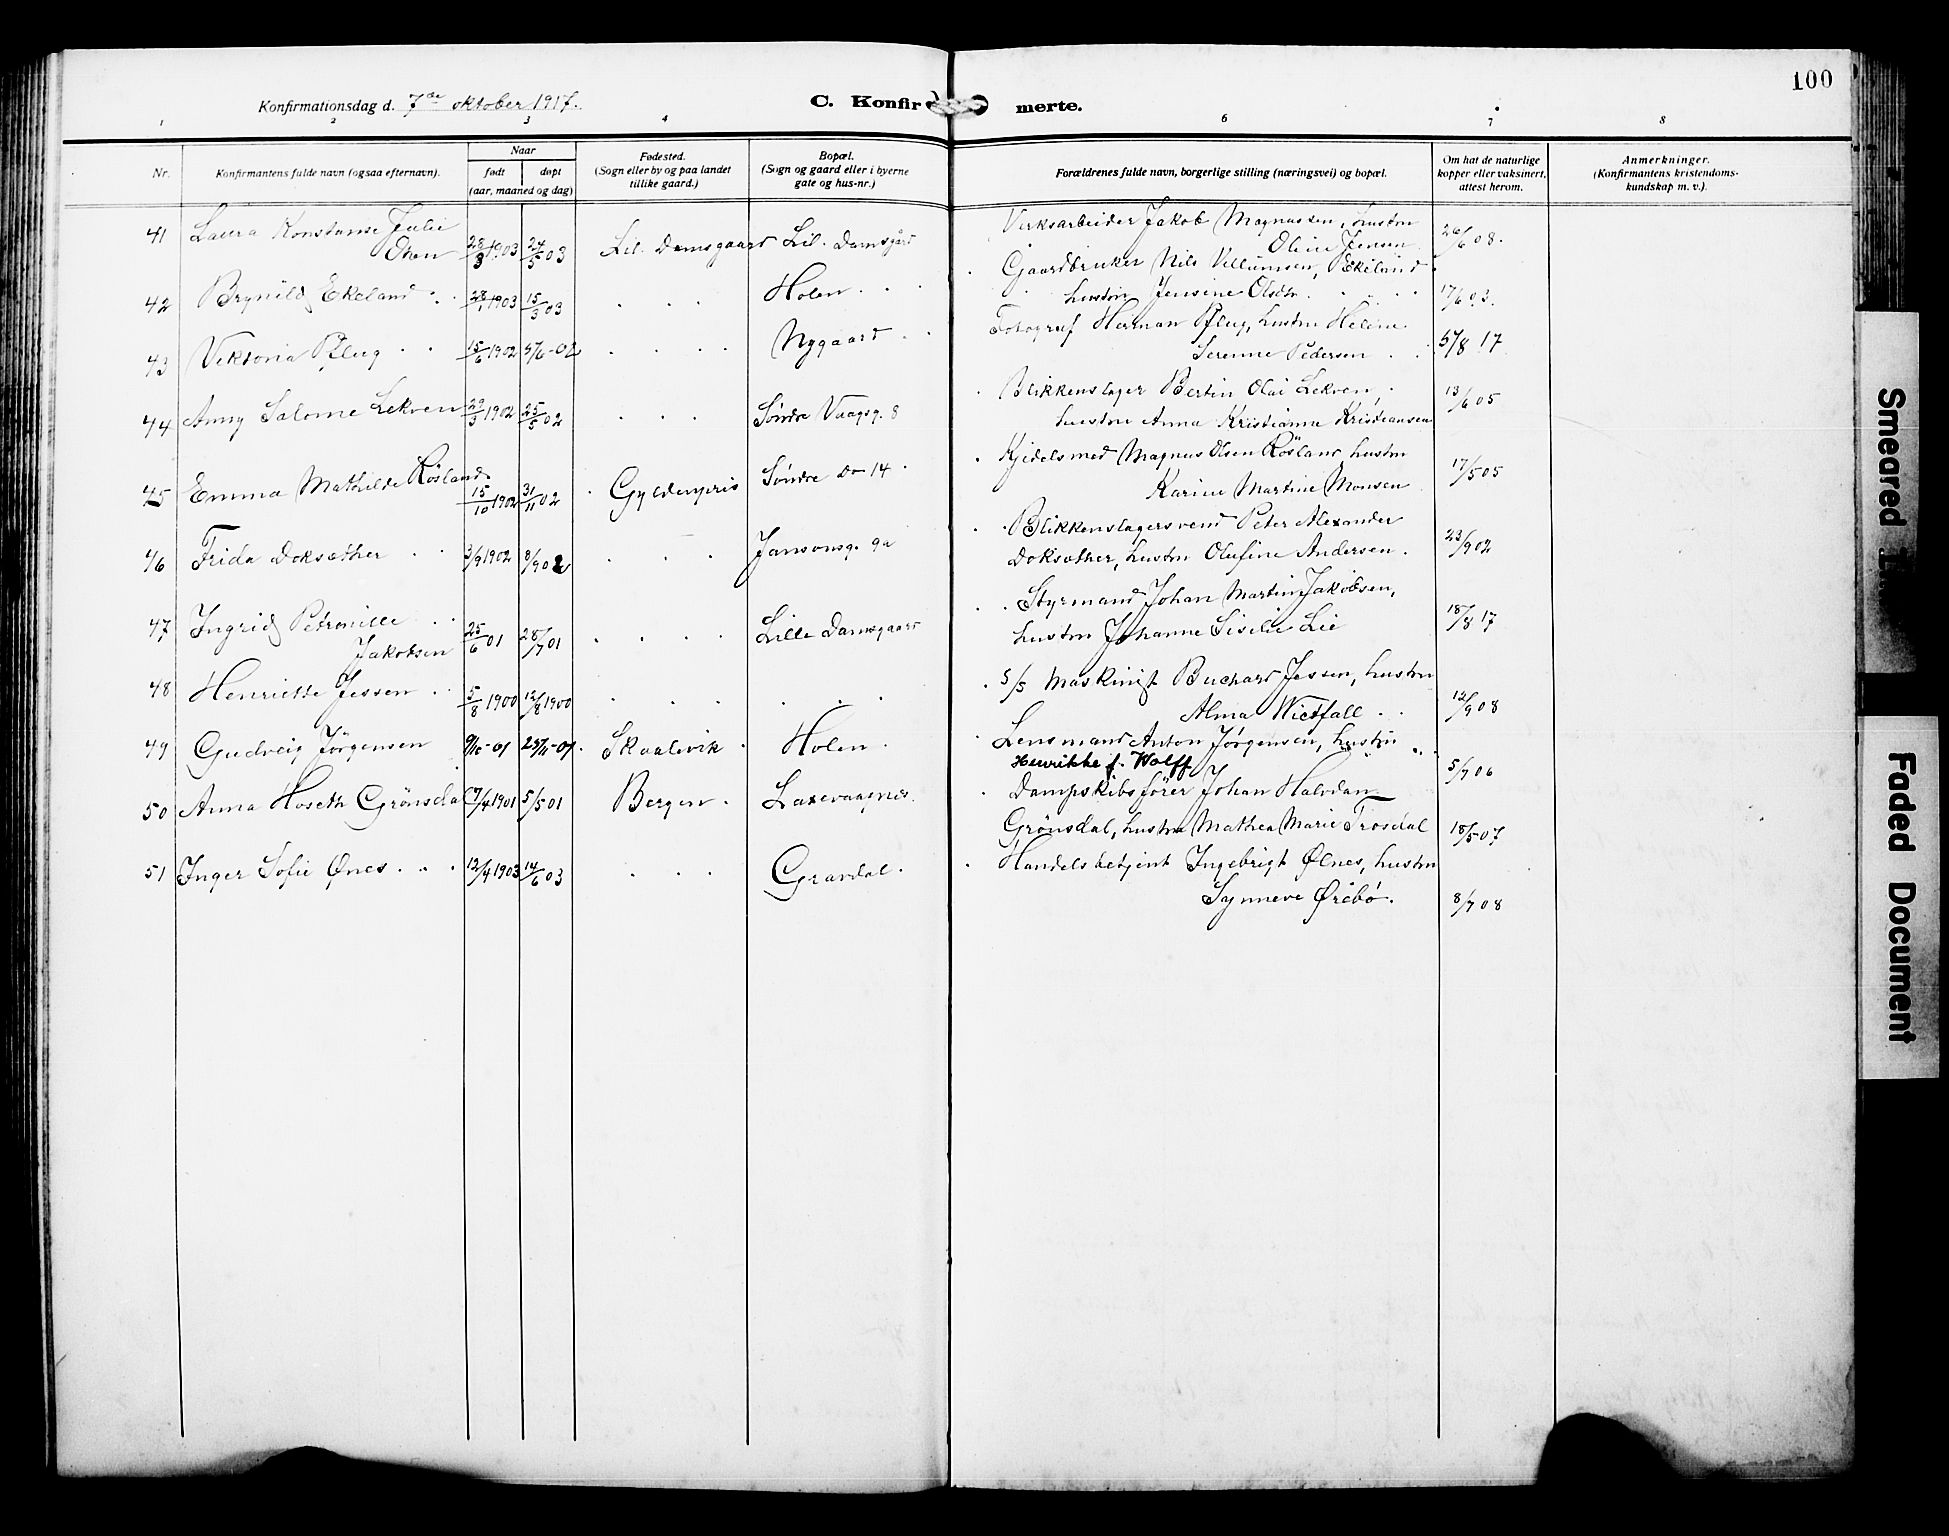 100
Konfirmationsdag d. 7de oktober 1917.
C. Konfirmerte.
1 2 3 4 6 7 8
Nr.
Konfirmantens fulde navn (ogsaa efternavn).
Naar
født døpt
(aar, maaned og dag)
Fødested.
(Sogn eller by og paa landet
tillike gaard.)
Bopæl.
(Sogn og gaard eller i byerne
gate og hus-nr.)
Forældrenes fulde navn, borgerlige stilling (næringsvei) og bopæl.
Om hat de naturlige
kopper eller vaksinert,
attest herom.
Anmerkninger.
(Konfirmantens kristendoms-
kundskap m. v.).
41 Laura Konstanse Julie 28/3 1903 24/5 03 Lil. Damsgaard Lil. Damsgård Verksarbeider Jakob Magnussen, hustru 26/6 08.
Oline Jensen
42 Brynild Ekeland 28/1 1903 15/3 03 Holen Gaardbruker Nils Villumsen, Ekeland
hustru Jensine Olsdtr. 17/6 03.
43 Viktoria Pflug 15/6 1902 Nygaard Fotograf Herman Pflug, hustru Heline
Serenne Pedersen 5/8 17
44 Anny Salome Lekven 29/3 1902 25/5 02 Søndre Vaagsg. 8 Blikkenslager Bertin Olai Lekven, 13/6 05
hustru Anna Kristianna Kristiansen
45 Emma Mathilde Røsland 15/10 1902 31/11 02 Gyldenpris Søndre Do 14 Kjedelsmed Magnus Olsen Røsland hustru 17/5 05
Karine Martine Monsen
46 Frida Doksæther 3/9 1902 8/9 02 Jansonsg. 9a Blikkenslagersvend Peter Alexander
Doksæther, hustru Olufine Andersen. 23/9 02
47 Ingrid Petronille 25/6 01 28/7 01 Lille Damsgaard Styrmand Johan Martin Jakobsen,
Jakobsen hustru Johanne Sisilie Lie 18/8 17
48 Henriette Jessen 5/8 1900 12/8 1900 S/S Maskinist Buchard Jessen, hustru
Alma Wictfall 12/9 08
49 Gudveig Jørgensen 9/10-01 Skaalevik Holen Lensmand Anton Jørgensen, hustru
Henrikke f. Wolff 5/7 06
50 Anna Hoseth Grønsdal 17/4 1901 5/5 01 Bergen Laxevaagnes Dampskibsfører Johan Halvdan
Grønsdal, hustru Mathea Marie Trosdal 18/5 07
51 Inger Sofie Ønes 12/4 1903 14/6 03 Gravdal Handelsbetjent Ingebrigt Ølnes, hustru
Synneve Ørebø. 8/7 08
Smeared
Faded Document